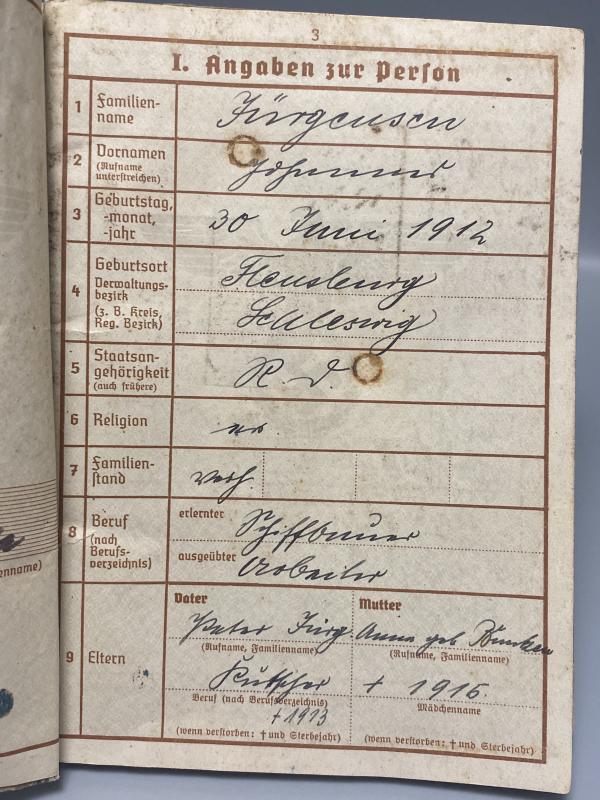 3
I. Angaben zur Person
1 Familien-
name
Jürgensen
2 Vornamen
(Rufname
unterstreichen)
Johannes
3 Geburtstag,
-monat,
-jahr
30 Juni 1912
4 Geburtsort
Verwaltungs-
bezirk
(z. B. Kreis,
Reg. Bezirk)
Flensburg
Schleswig
5 Staatsan-
gehörigkeit
(auch frühere)
R. D.
6 Religion
7 Familien-
stand
verh.
8 Beruf
(nach
Berufs-
verzeichnis)
erlernter
Schiffbauer
ausgeübter
Arbeiter
9 Eltern
Vater
Peter Jürg
(Rufname, Familienname)
Kutscher
Beruf (nach Berufsverzeichnis)
† 1913
(wenn verstorben: † und Sterbejahr)
Mutter
Anna geb
(Rufname, Familienname)
† 1916.
Mädchenname
(wenn verstorben: † und Sterbejahr)
enname)